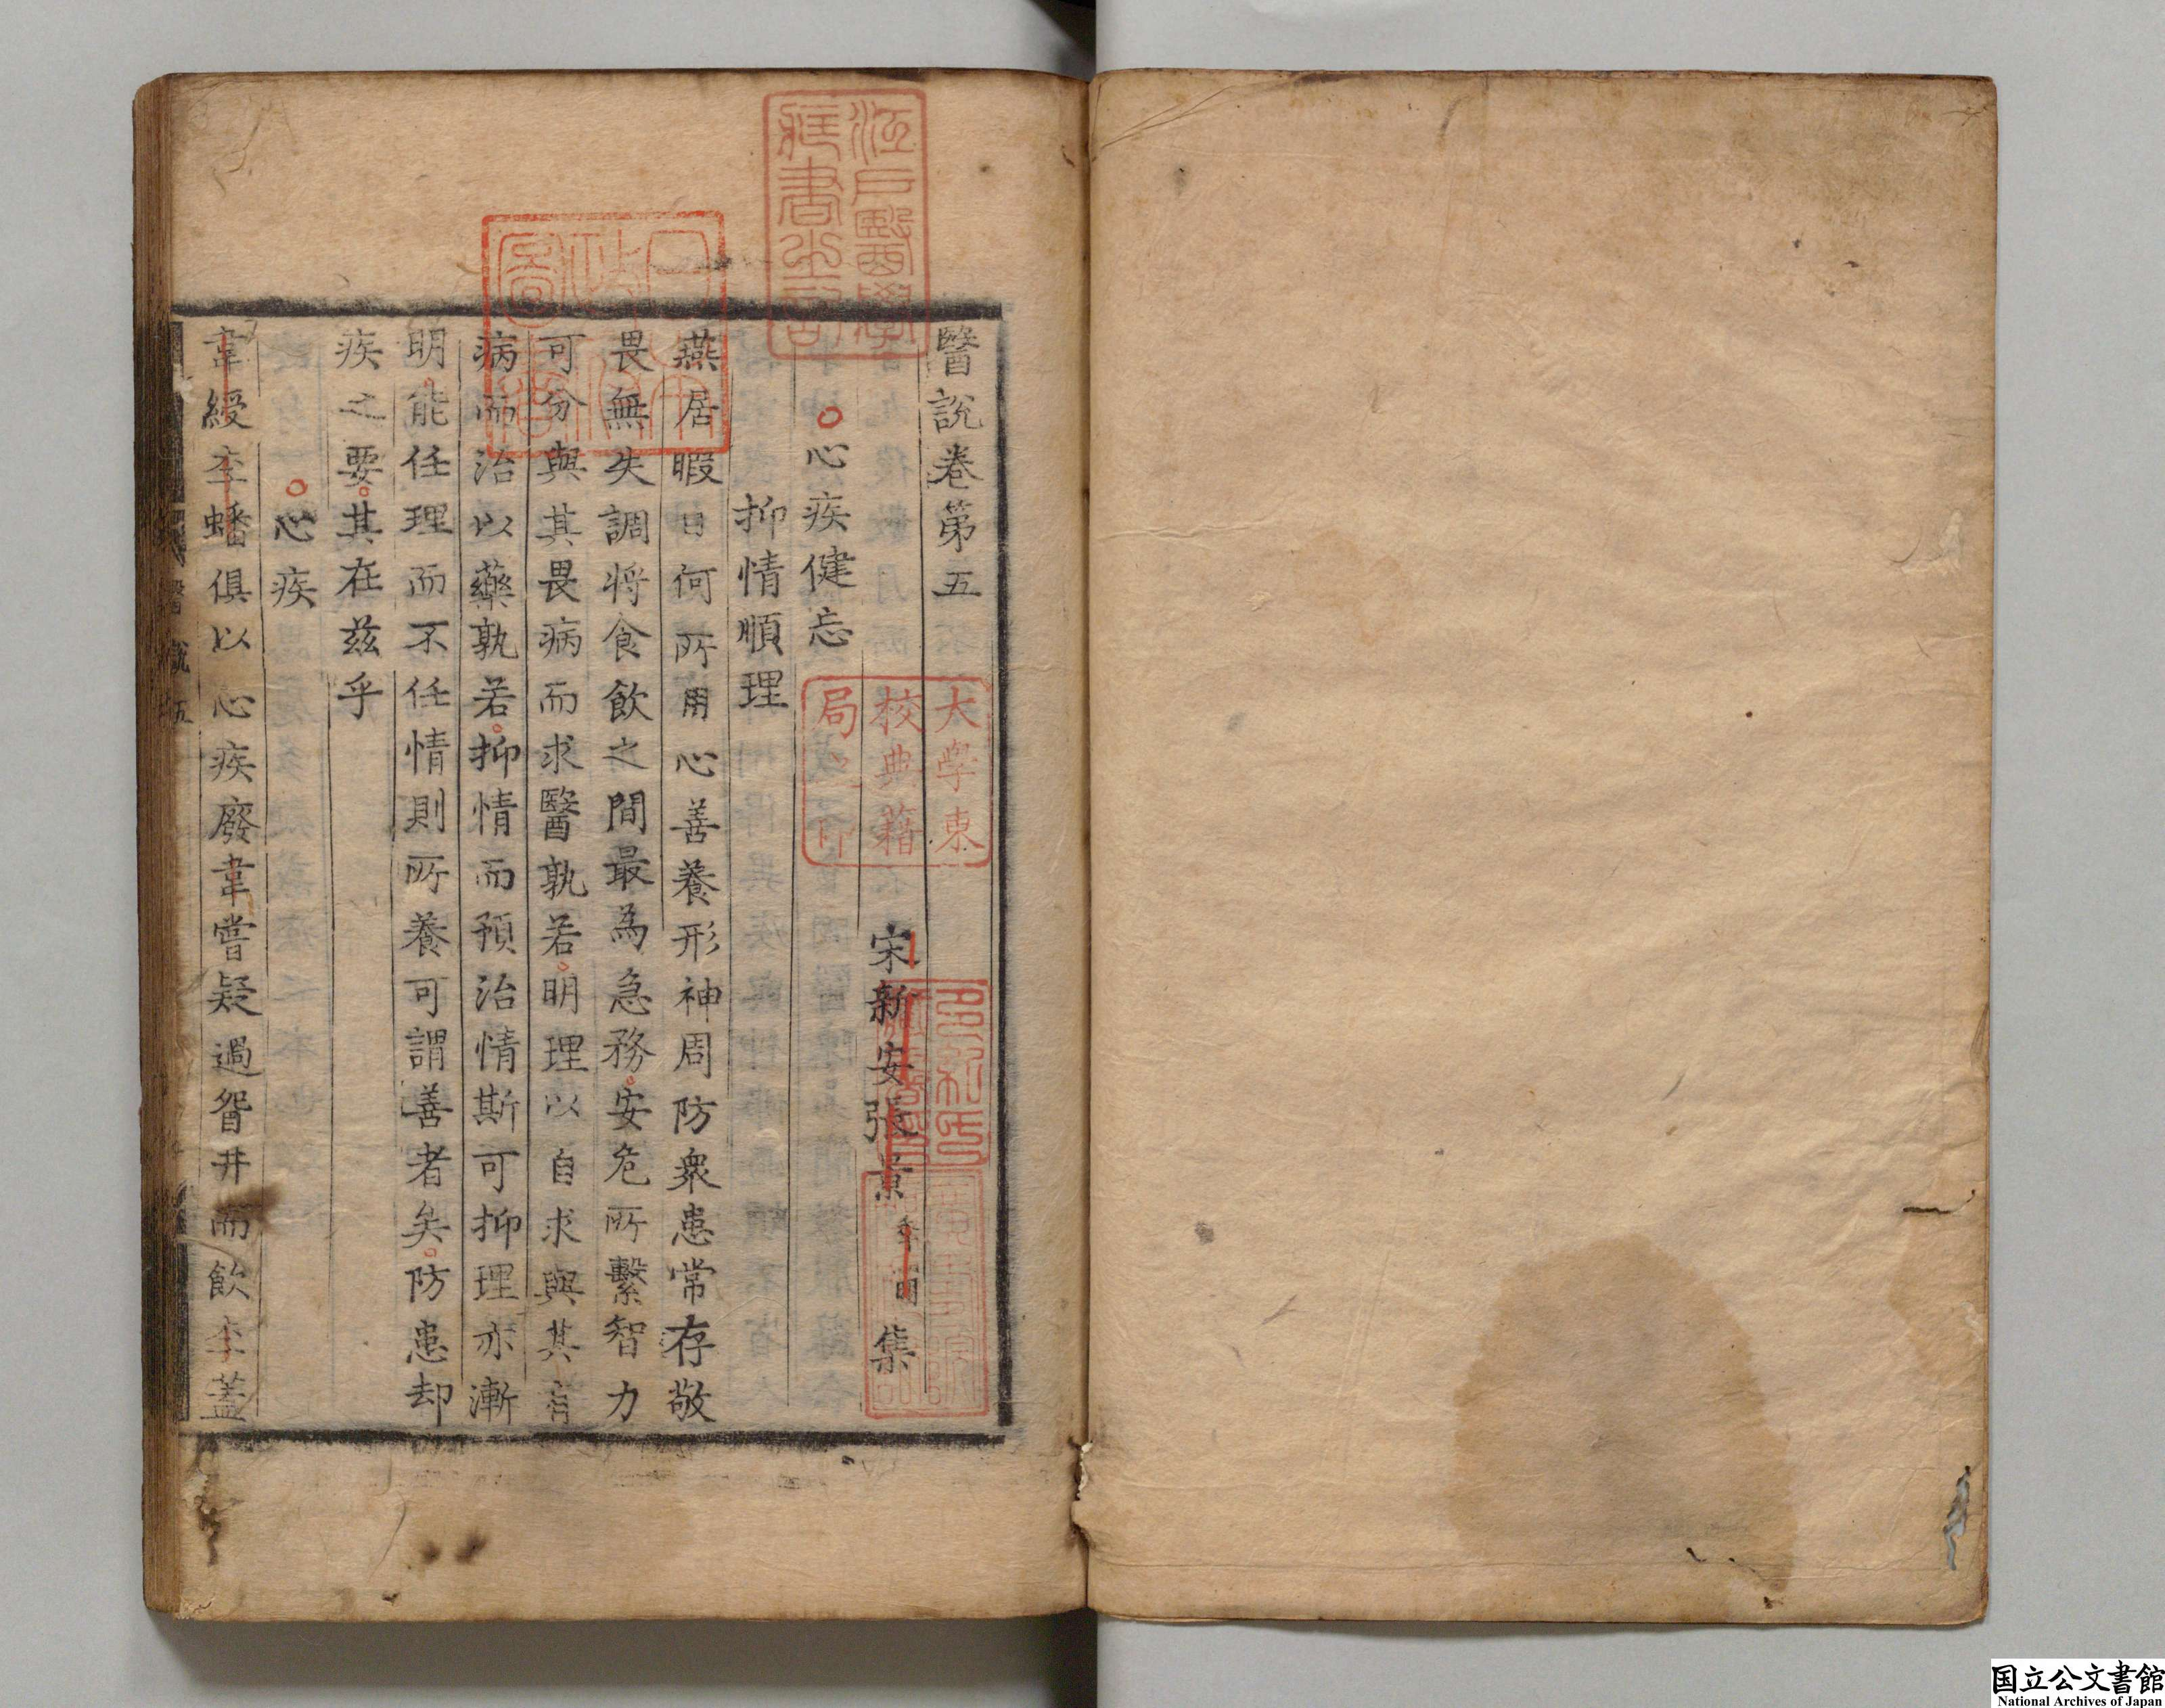 醫說卷第五
宋新安張景季明集
心疾健忘
抑情順理
燕居暇日何所用心善養形神周防衆患常存敬
畏無失調將食飲之間最為急務安危所繫智力
可分與其畏病而求醫孰若明理以自求與其有
病而治以藥孰若抑情而預治情斯可抑理亦漸
明能任理而不任情則所養可謂善者矣防患却
疾之要其在茲乎
心疾
韋綬李蟠俱以心疾廢韋嘗疑過眢井而飲李蓋
江戶醫學
藏書之記
日本
政府
圖書
大學東
校典籍
局之印
多紀氏
藏書印
国立公文書館
National Archives of Japan